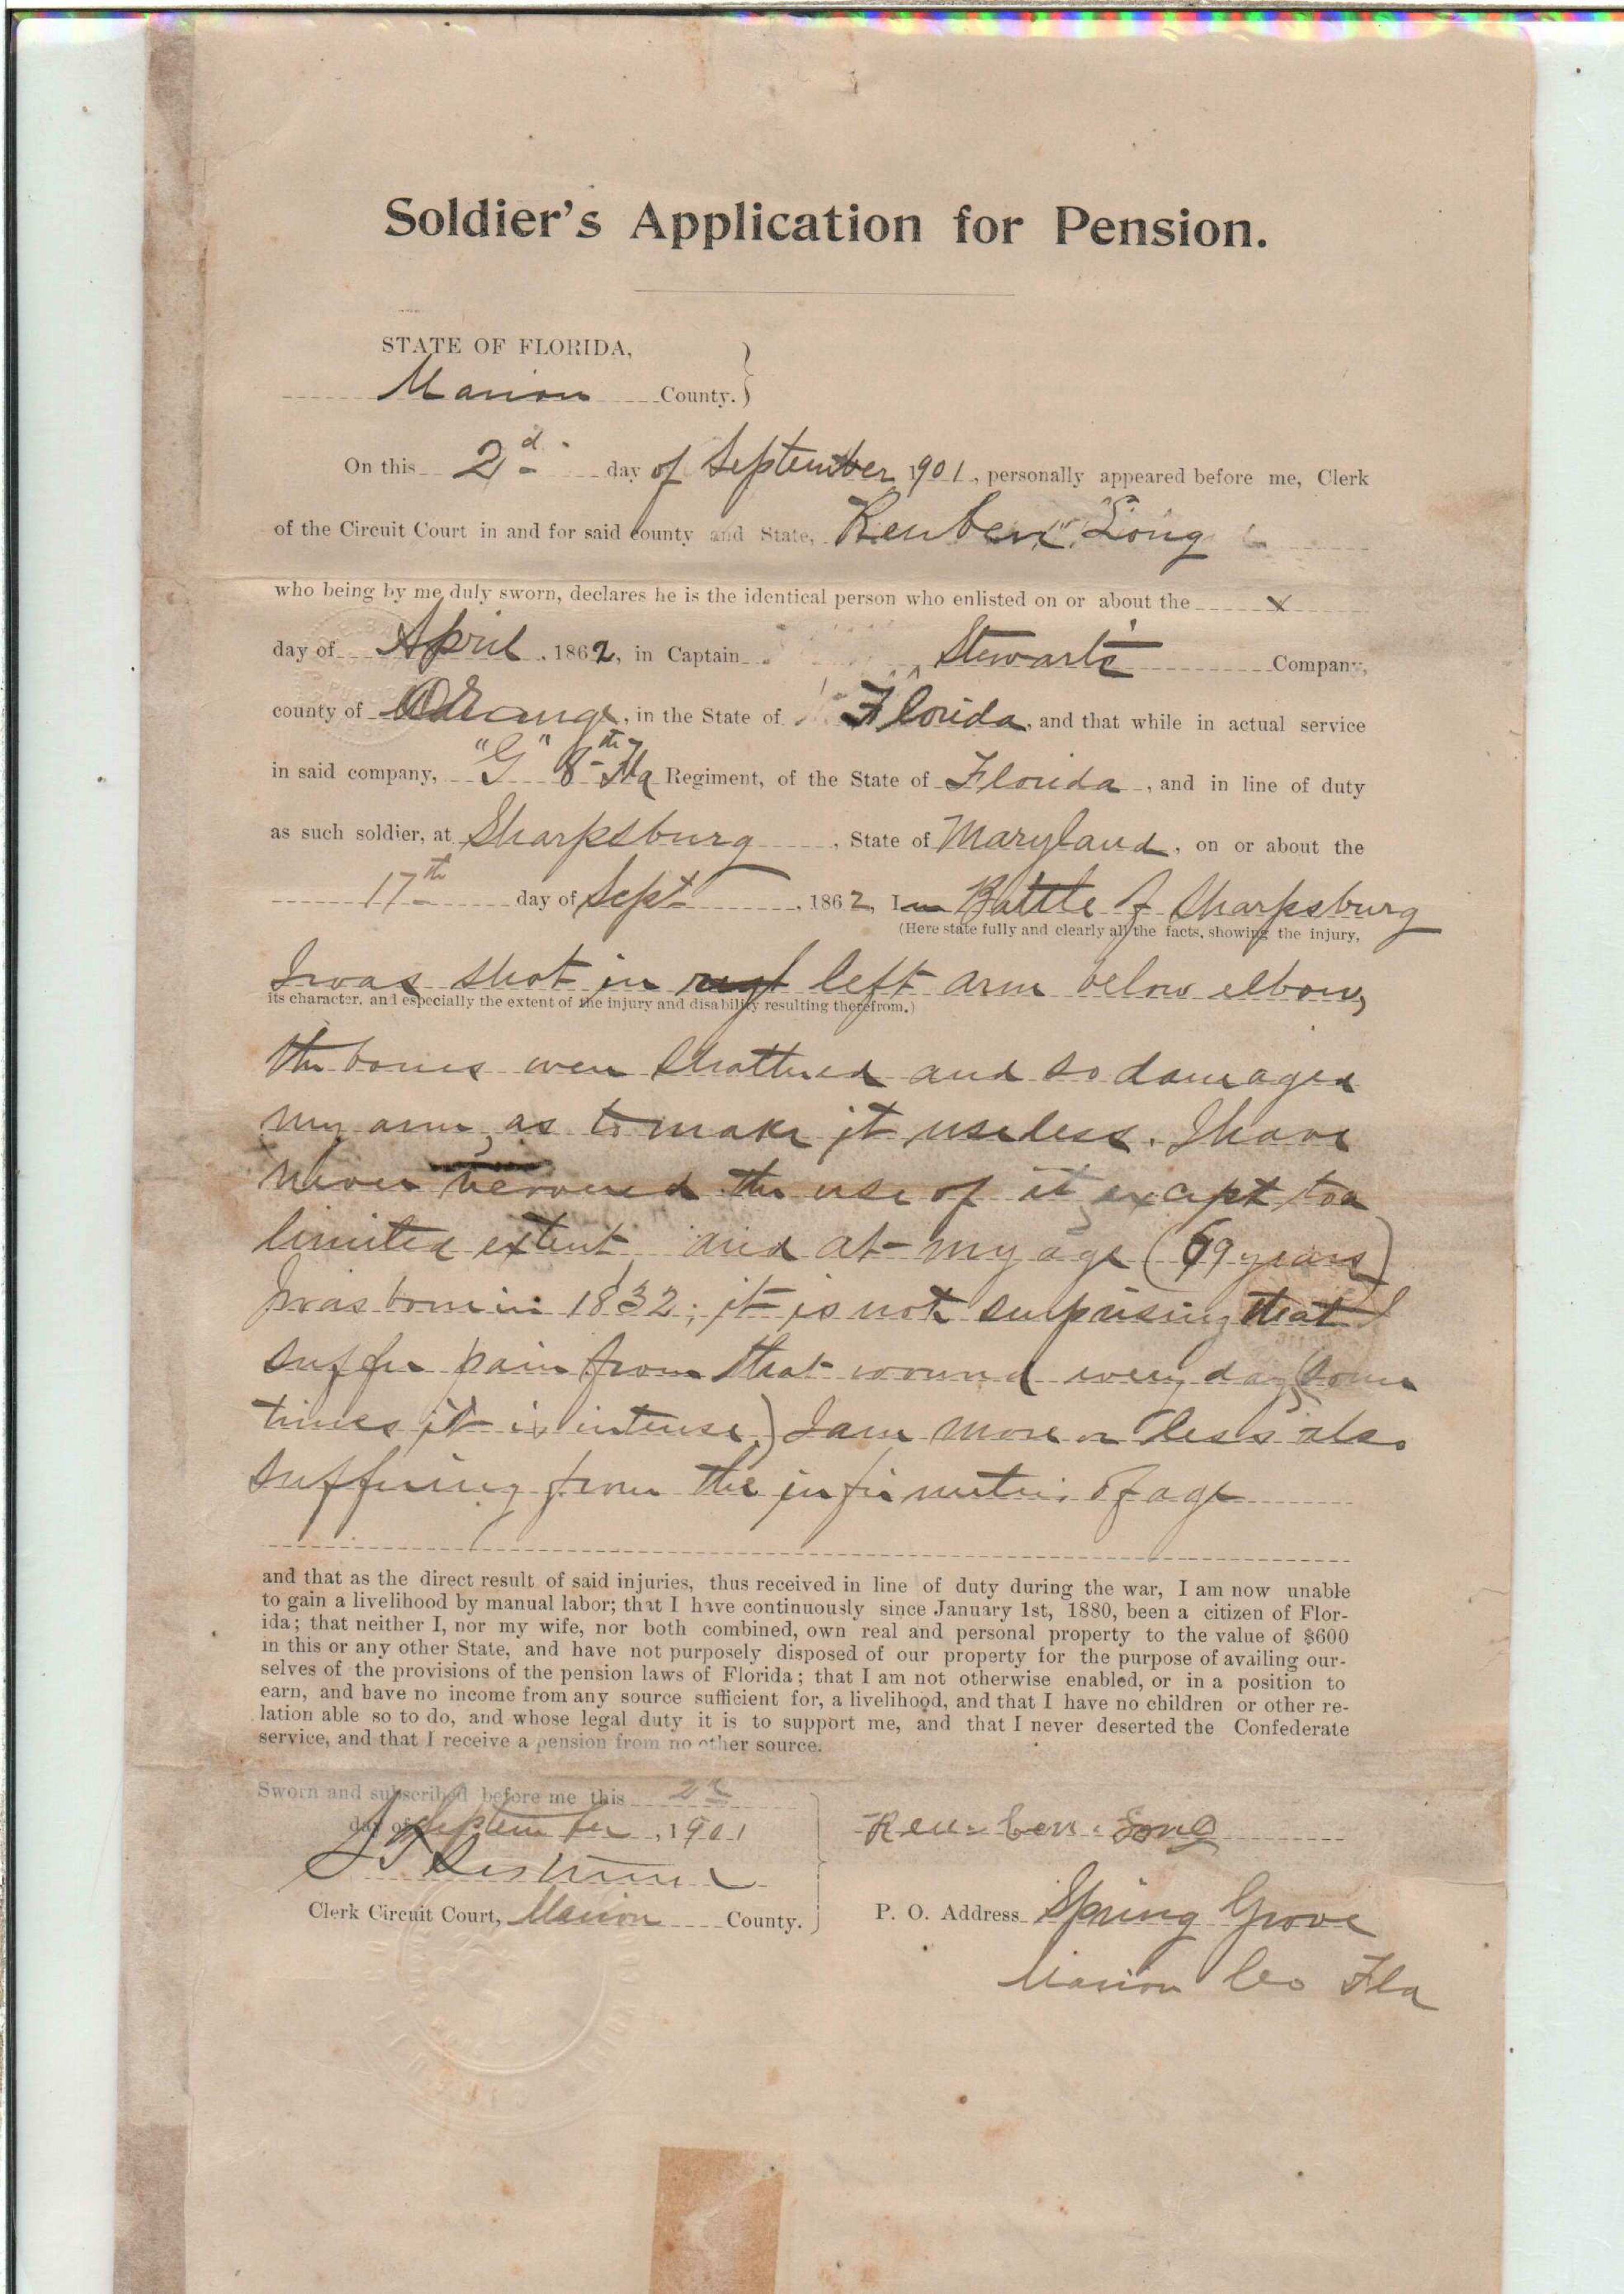 Soldier's Application for Pension.
STATE OF FLORIDA,
Marion County.
On this 2d day of September 1901, personally appeared before me, Clerk
of the Circuit Court in and for said county and State, Reuben Long
who being by me duly sworn, declares he is the identical person who enlisted on or about the x
day of April, 1862, in Captain Stewarts Company,
county of Orange, in the State of Florida, and that while in actual service
in said company, "G" 8th Fla Regiment, of the State of Florida, and in line of duty
as such soldier, at Sharpsburg, State of Maryland, on or about the
17th day of Sept, 1862, I in Battle of Sharpsburg
(Here state fully and clearly all the facts, showing the injury,
I was shot in left arm below elbow,
its character, and especially the extent of the injury and disability resulting therefrom.)
the bones were shattered and so damaged
my arm, as to make it useless. I have
never the use of it except to a
limited extent, and at my age (69 years)
I was born in 1832; it is not surprising that I
suffer pain from that wound every day (some
times it is intense.) I am more or less also
suffering from the infirmities of age
and that as the direct result of said injuries, thus received in line of duty during the war, I am now unable
to gain a livelihood by manual labor; that I have continuously since January 1st, 1880, been a citizen of Flor-
ida; that neither I, nor my wife, nor both combined, own real and personal property to the value of $600
in this or any other State, and have not purposely disposed of our property for the purpose of availing our-
selves of the provisions of the pension laws of Florida; that I am not otherwise enabled, or in a position to
earn, and have no income from any source sufficient for, a livelihood, and that I have no children or other re-
lation able so to do, and whose legal duty it is to support me, and that I never deserted the Confederate
service, and that I receive a pension from no other source.
Sworn and subscribed before me this 2d
day of September, 1901
Reuben Long
Clerk Circuit Court, Marion County.
P. O. Address Spring Grove
Marion Co Fla